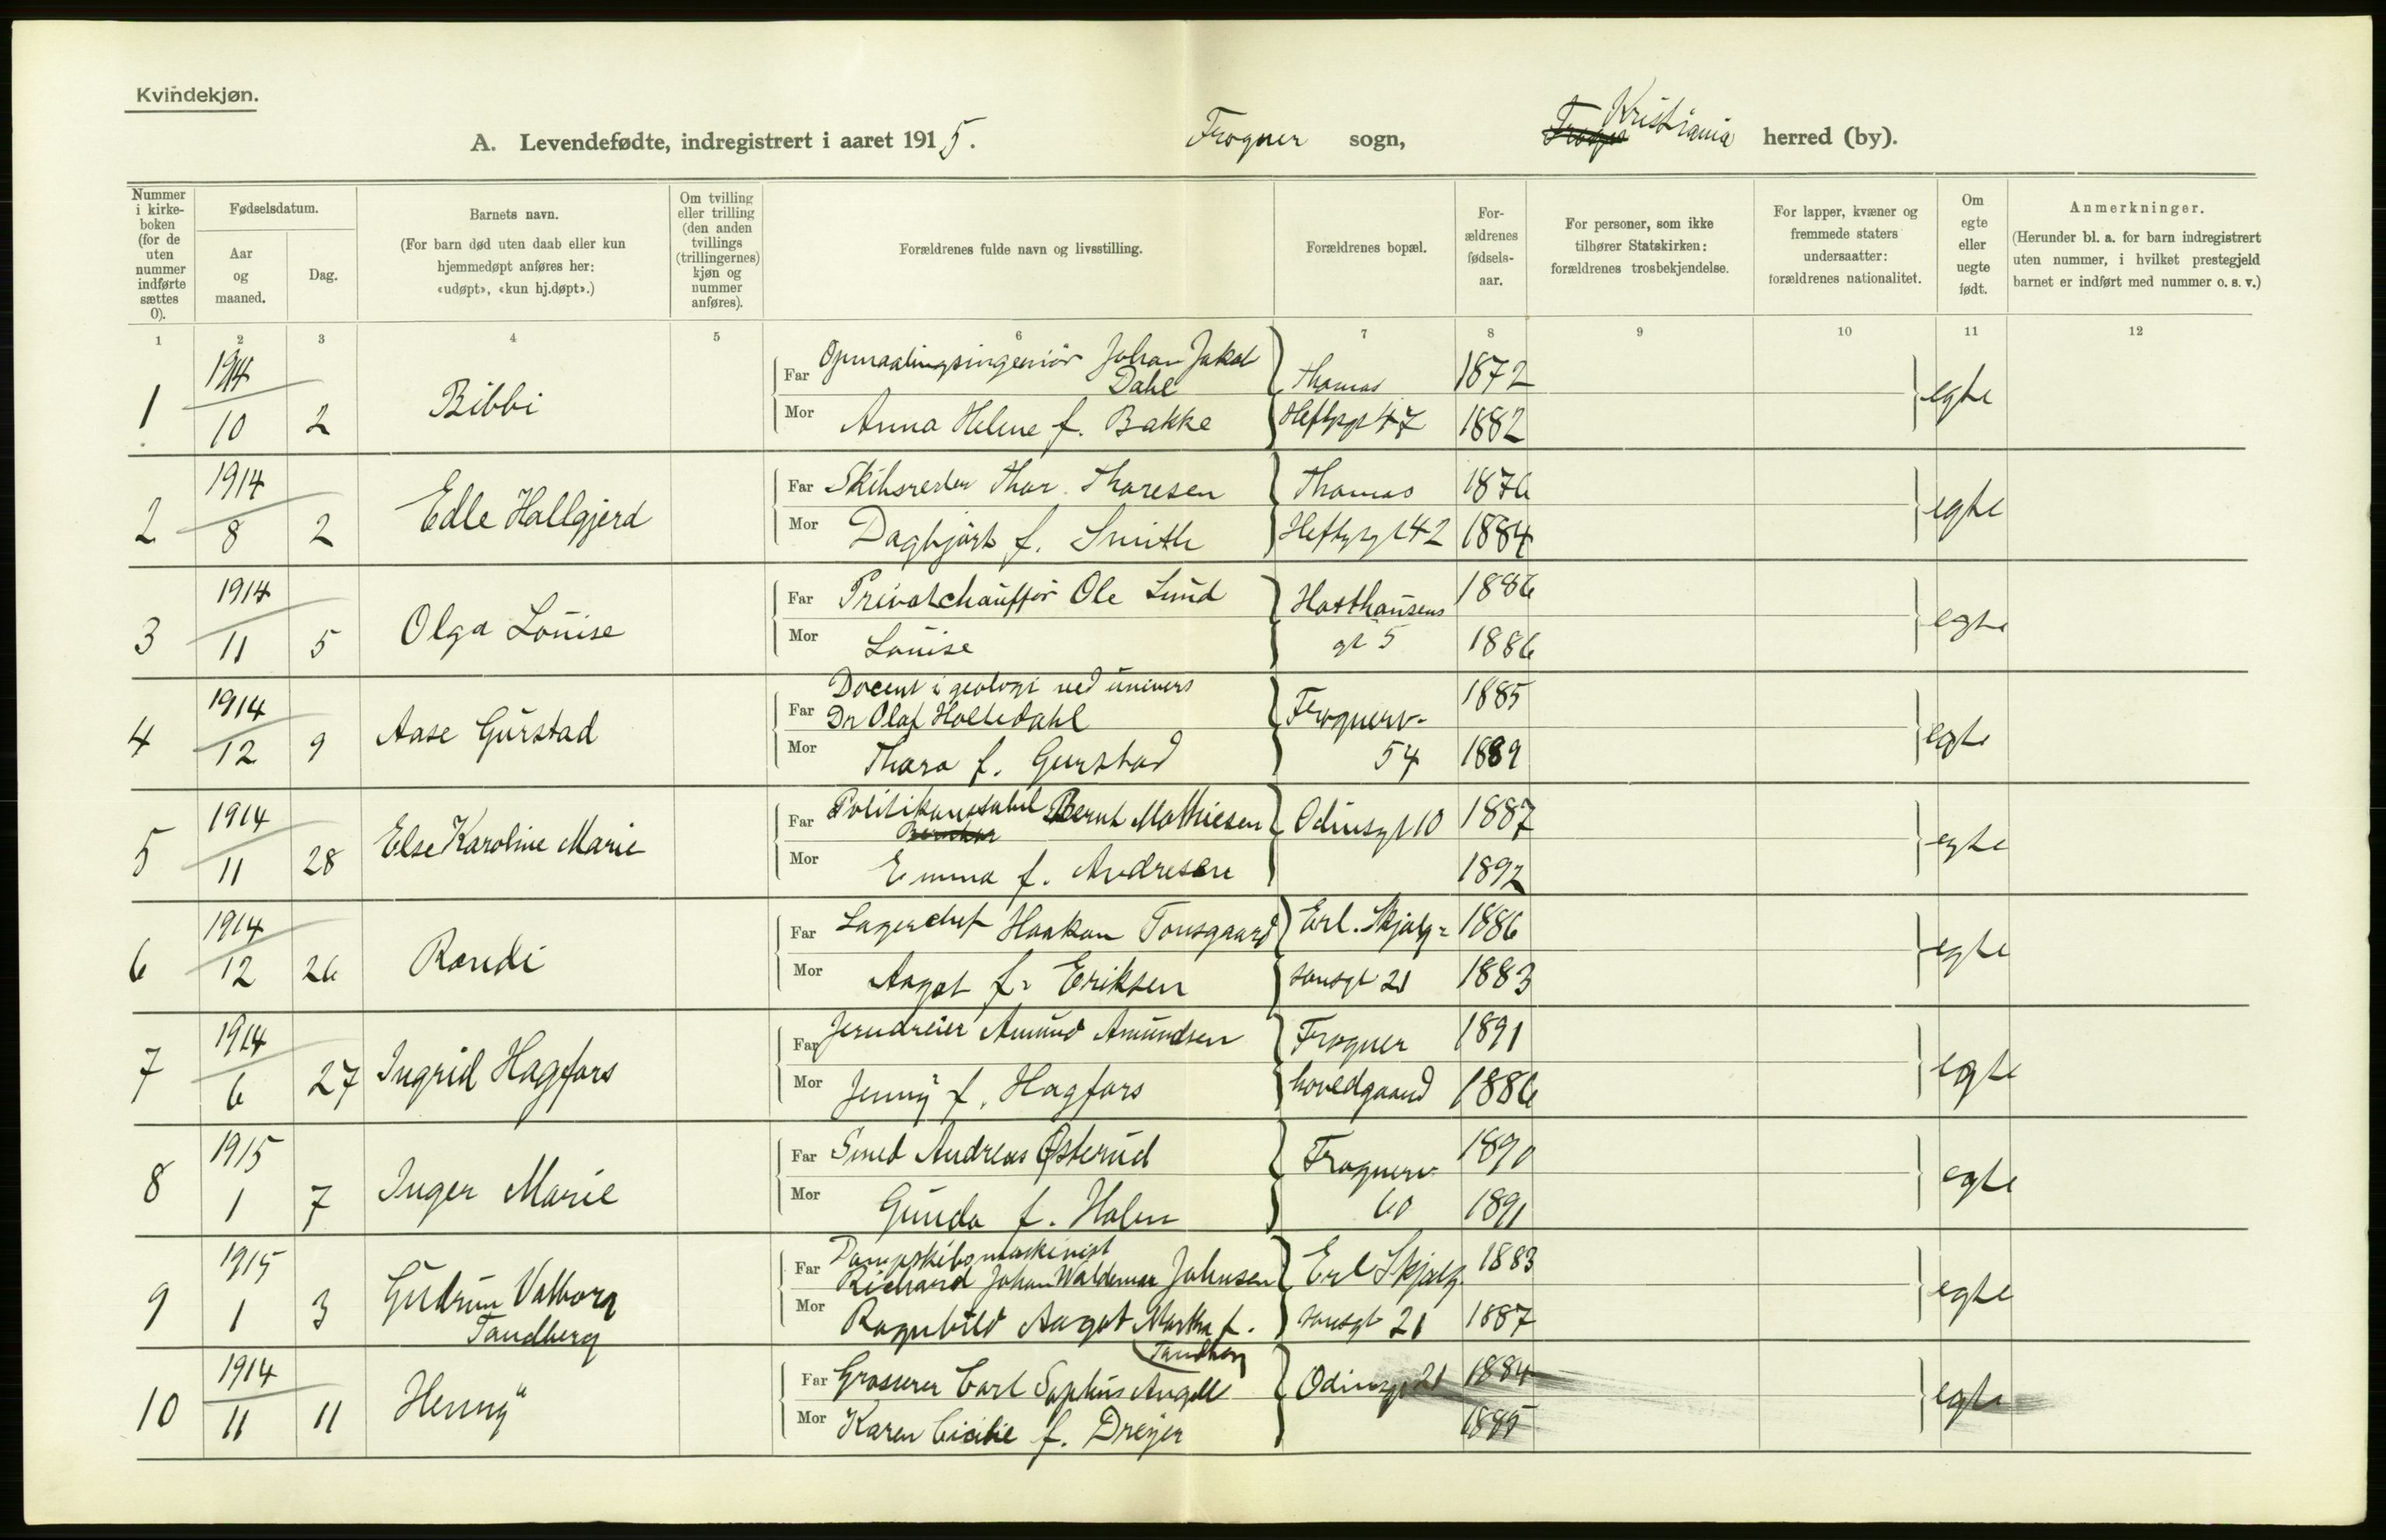 Kvindekjøn.
A. Levendefødte, indregistrert i aaret 1915. Frogner sogn, Kristiania herred (by).
Nummer i kirke-boken (for de uten nummer indførte sættes 0).
Fødselsdatum.
Aar og maaned.
Dag.
Barnets navn.
(For barn død uten daab eller kun hjemmedøpt anføres her: «udøpt», «kun hj.døpt».)
Om tvilling eller trilling (den anden tvillings (trillingernes) kjøn og nummer anføres).
Forældrenes fulde navn og livsstilling.
Forældrenes bopæl.
For-ældrenes fødsels-aar.
For personer, som ikke tilhører Statskirken: forældrenes trosbekjendelse.
For lapper, kvæner og fremmede staters undersaatter: forældrenes nationalitet.
Om egte eller uegte født.
Anmerkninger.
(Herunder bl. a. for barn indregistrert uten nummer, i hvilket prestegjeld barnet er indført med nummer o. s. v.)
1 2 3 4 5 6 7 8 9 10 11 12
1 1914 10 2 Bibbi
Far Opmaalingsingeniør Johan Jakob Dahl Thomas 1872 egte
Mor Anna Helene f. Bakke Heftyesgt 47 1882
2 1914 8 2 Edle Hallgjerd
Far Skibsreder Thor Thoresen Thomas 1876 egte
Mor Dagbjørt f. Smith Heftyesgt 42 1884
3 1914 11 5 Olga Louise
Far Privatchauffør Ole Lund 1886 egte
Mor Louise gt 5 1886
4 1914 12 9 Aase Gurstad
Far Docent i geologi ved univers Dr Olaf Holtedahl Frognerv. 1885 egte
Mor Thora f. Gurstad 54 1889
5 1914 11 28 Else Karoline Marie
Far Bernt Mathiesen Odinsgt 10 1887 egte
Mor Emma f. Andresen 1892
6 1914 12 26 Randi
Far Lagerchef Haakon Tonsgaard Erl. Skjalg- 1886 egte
Mor Aagot f. Eriksen sønsgt 21 1883
7 1914 6 27 Ingrid Hagfors
Far Jerndreier Amund Amundsen Frogner 1891 egte
Mor Jenny f. Hagfors hovedgaard 1886
8 1915 1 7 Inger Marie
Far Smed Andreas Østerud Frognerv 1890 egte
Mor Gunda f. Holen 60 1891
9 1915 1 3 Gudrun Valborg Tandberg
Far Dampskibsmaskinist Richard Johan Waldemar Johnsen Erl Skjalg- 1883 egte
Mor Ragnhild Aagot Martha f. Tandberg sønsgt 21 1887
10 1914 11 11 Henny
Far Grosserer Carl Sophus Angell Odinsgt 21 1884 egte
Mor Karen Cicilie f. Dreyer 1885